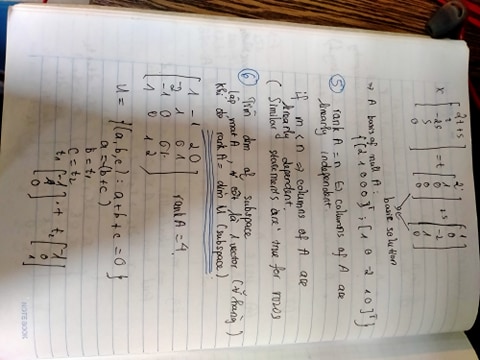 x [2t+s t -2s s 0] = t [2 1 0 0 0] + s [1 0 -2 1 0]
basic solution
⇒ A basis of null A :
{[2 1 0 0 0]ᵀ ; [1 0 -2 1 0]ᵀ}
⑤ rank A = n ⇔ columns of A are
linearly independent.
if m < n ⇒ columns of A are
linearly dependent.
( Similar statements are true for rows
⑥ Tìm dim of subspace
lập mat A , ∀ cột là 1 vector (∀ hàng)
khi đó rank A = dim U (subspace)
[ 1 -1 2 0
-2 1 0 1
-1 0 0 1
1 0 1 2 ] rank A = 4.
U = {(a, b, c) : a + b + c = 0 }
a = -(b+c)
b = t₁
c = t₂
t₁ [-1 1 0] + t₂ [-1 0 1]
NOTE BOOK